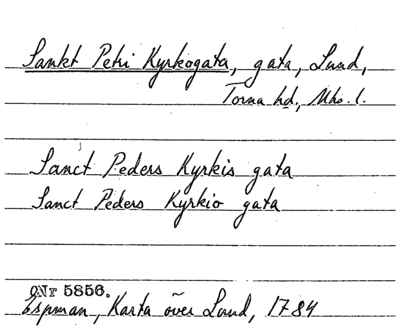 Sankt Petri Kyrkogata, gata, Lund,
Torna hd, Mhs. l.
Sanct Peders Kyrkis gata
Sanct Peders Kyrkio gata
ONr 5856.
Espman, Karta över Lund, 1784